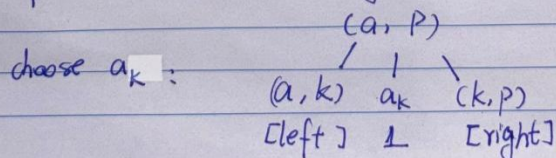 (a, p)
choose aₖ :
(a, k) aₖ (k, p)
[left] 1 [right]